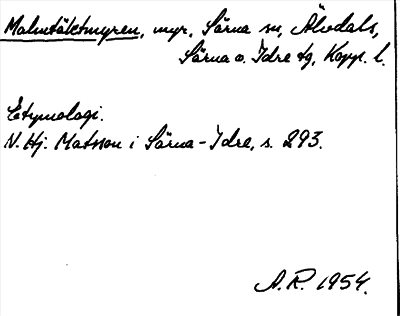 Malmtäktmyren, myr, Särna sn, Älvdals,
Särna o. Idre tg, Kopp. l.
Etymologi.
N. Hj. Matsson i Särna-Idre, s. 293.
A.R. 1954.